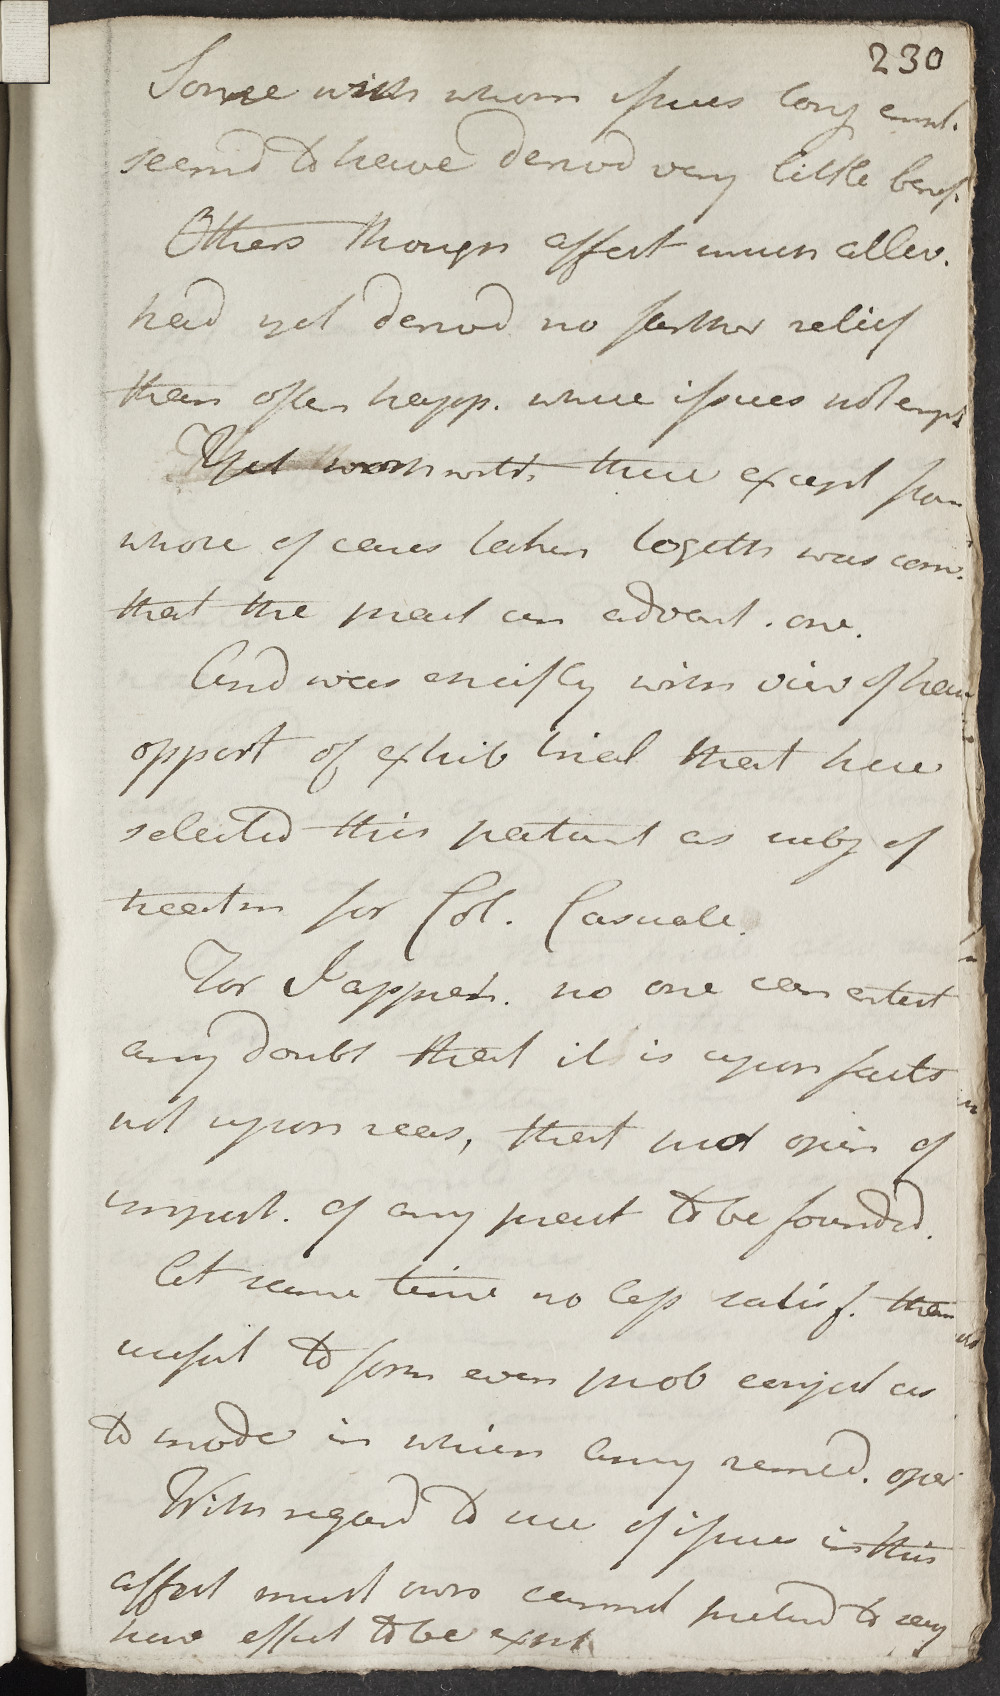 230
Some with whom issues long cont.
seemd to have derivd very little benef.
Others though affect much allev.
had yet derivd no farther relief
than often happ. where issues not empl
Yet notwith. these except from
whole of cases taken togeth was conv.
that the pract an advant. one.
And was chiefly with view of hav
opport of exhib trial that have
selected this patient as subj of
treatm for Col. Casuale.
For I appreh. no one can entert
any doubt that it is upon facts
not upon reas, that just opin of
import. of any pract to be founded.
At same time no less satisf. than
usefull to form even prob conject as
to mode in which any remed. oper
With regard to use of issues in this
affect must own cannot pretend to say
how effect to be expl